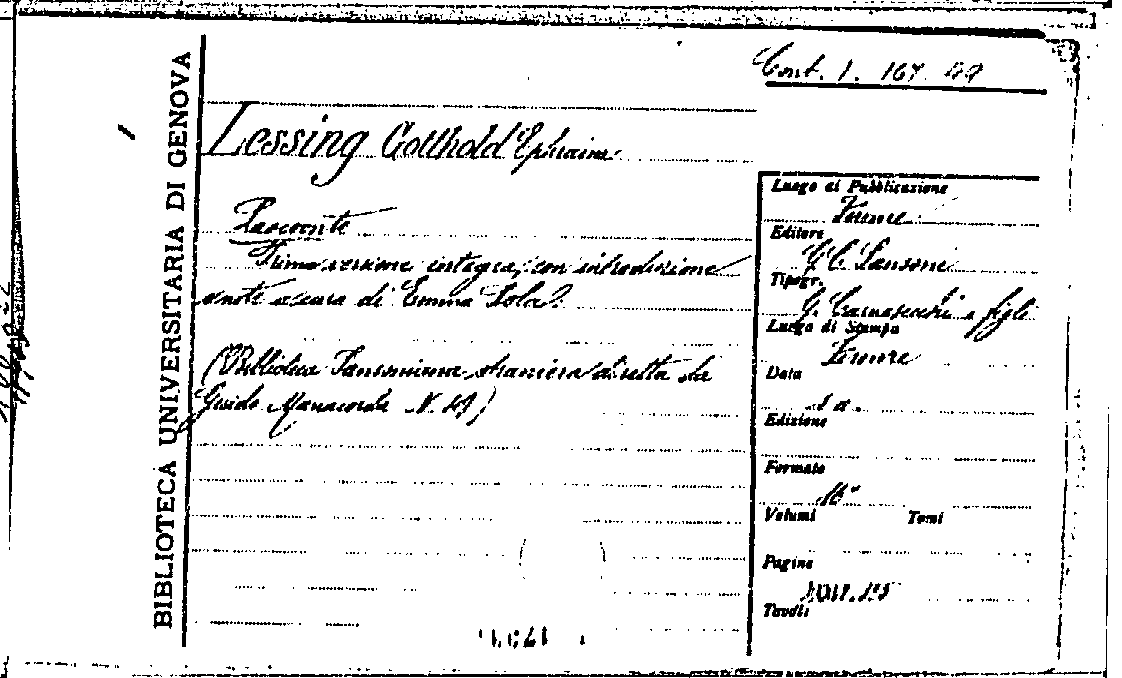 BIBLIOTECA UNIVERSITARIA DI GENOVA
Cont. 1. 167. 49
Lessing Gotthold Ephraim
Prima versione integra, con introduzione
e note a cura di Emma Sola.
(Biblioteca Sansoniana straniera diretta da
Guido Manacorda N. 49)
Luogo di Pubblicazione
Firenze
Editore
G. C. Sansoni
Tipogr.
G. Carnesecchi e figli
Luogo di Stampa
Firenze
Data
s. a.
Edizione
Formato
16°
Volumi Tomi
Pagine
Tavole